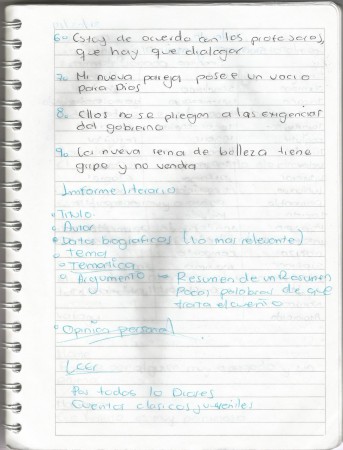 6.- Estoy de acuerdo con los profesores,
que hay que dialogar
7.- Mi nueva pareja posee un vacio
para Dios
8.- Ellos no se pliegan a las exigencias
del gobierno
9.- La nueva reina de belleza tiene
gripe y no vendra
Informe literario
Titulo
Autor
Datos biograficos (lo mas relevante)
Tema
Tematica
Argumento → Resumen de un Resumen
Pocas palabras de que
trata el cuento
Opinion personal
Leer
Por todos lo Dioses
Cuentos clasicos juveniles